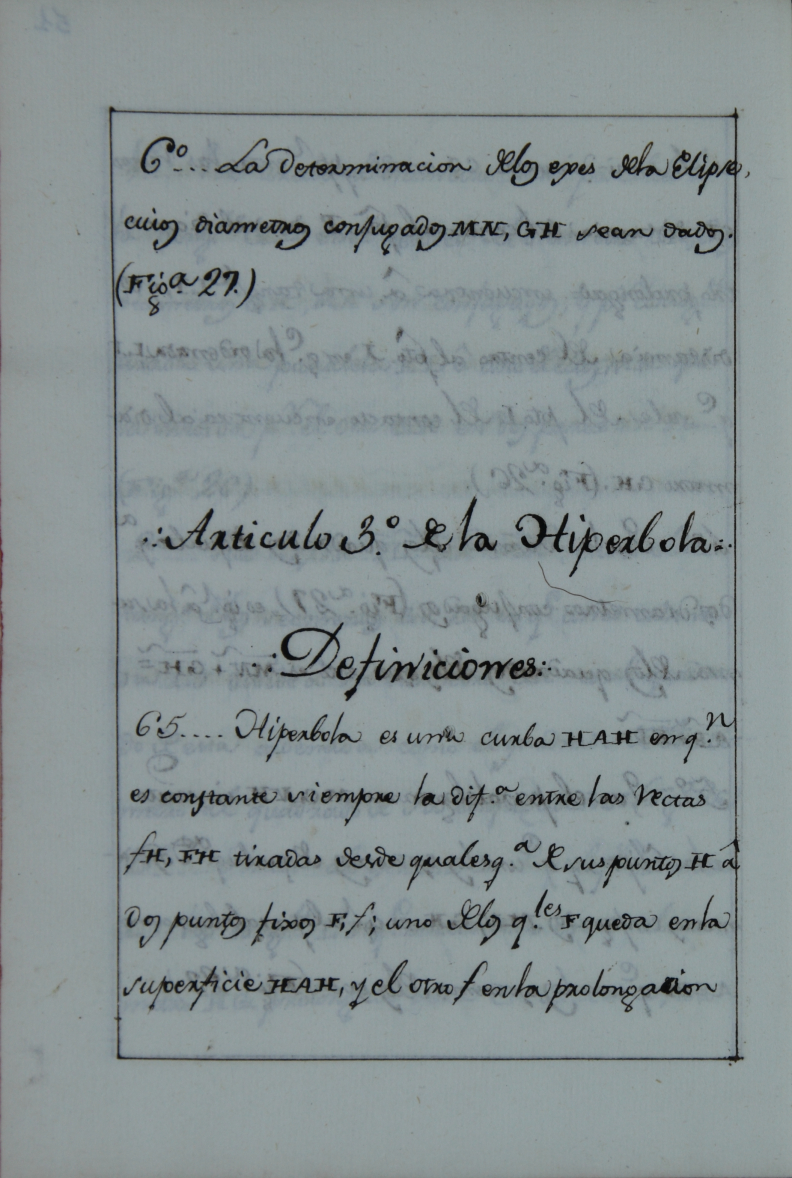 6º... La determinacion de los exes de la Elipse,
cuios diametros conjugados MN, GH sean dados.
(Figª 27.)
.:Articulo 3.º de la Hiperbola:.
.:Definiciones:.
65.... Hiperbola es una curba HAH en q.n
es constante siempre la dif.ª entre las rectas
fH, FH tiradas desde qualesq.ª de sus puntos H â
dos puntos fixos F, f; uno de los q.les F queda en la
superficie HAH, y el otro f en la prolongacion